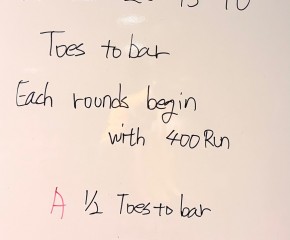 Toes to bar
Each rounds begin
with 400 Run
A ½ Toes to bar